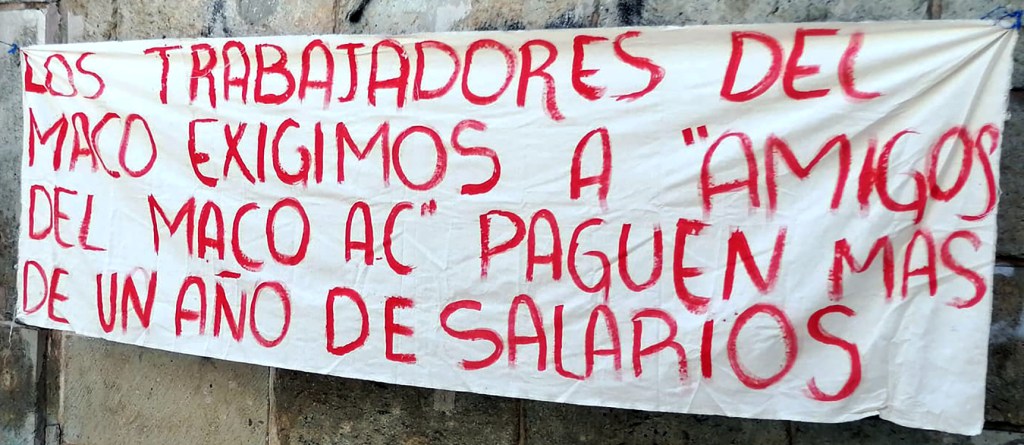 LOS TRABAJADORES DEL
MACO EXIGIMOS A "AMIGOS
DEL MACO A.C" PAGUEN MAS
DE UN AÑO DE SALARIOS